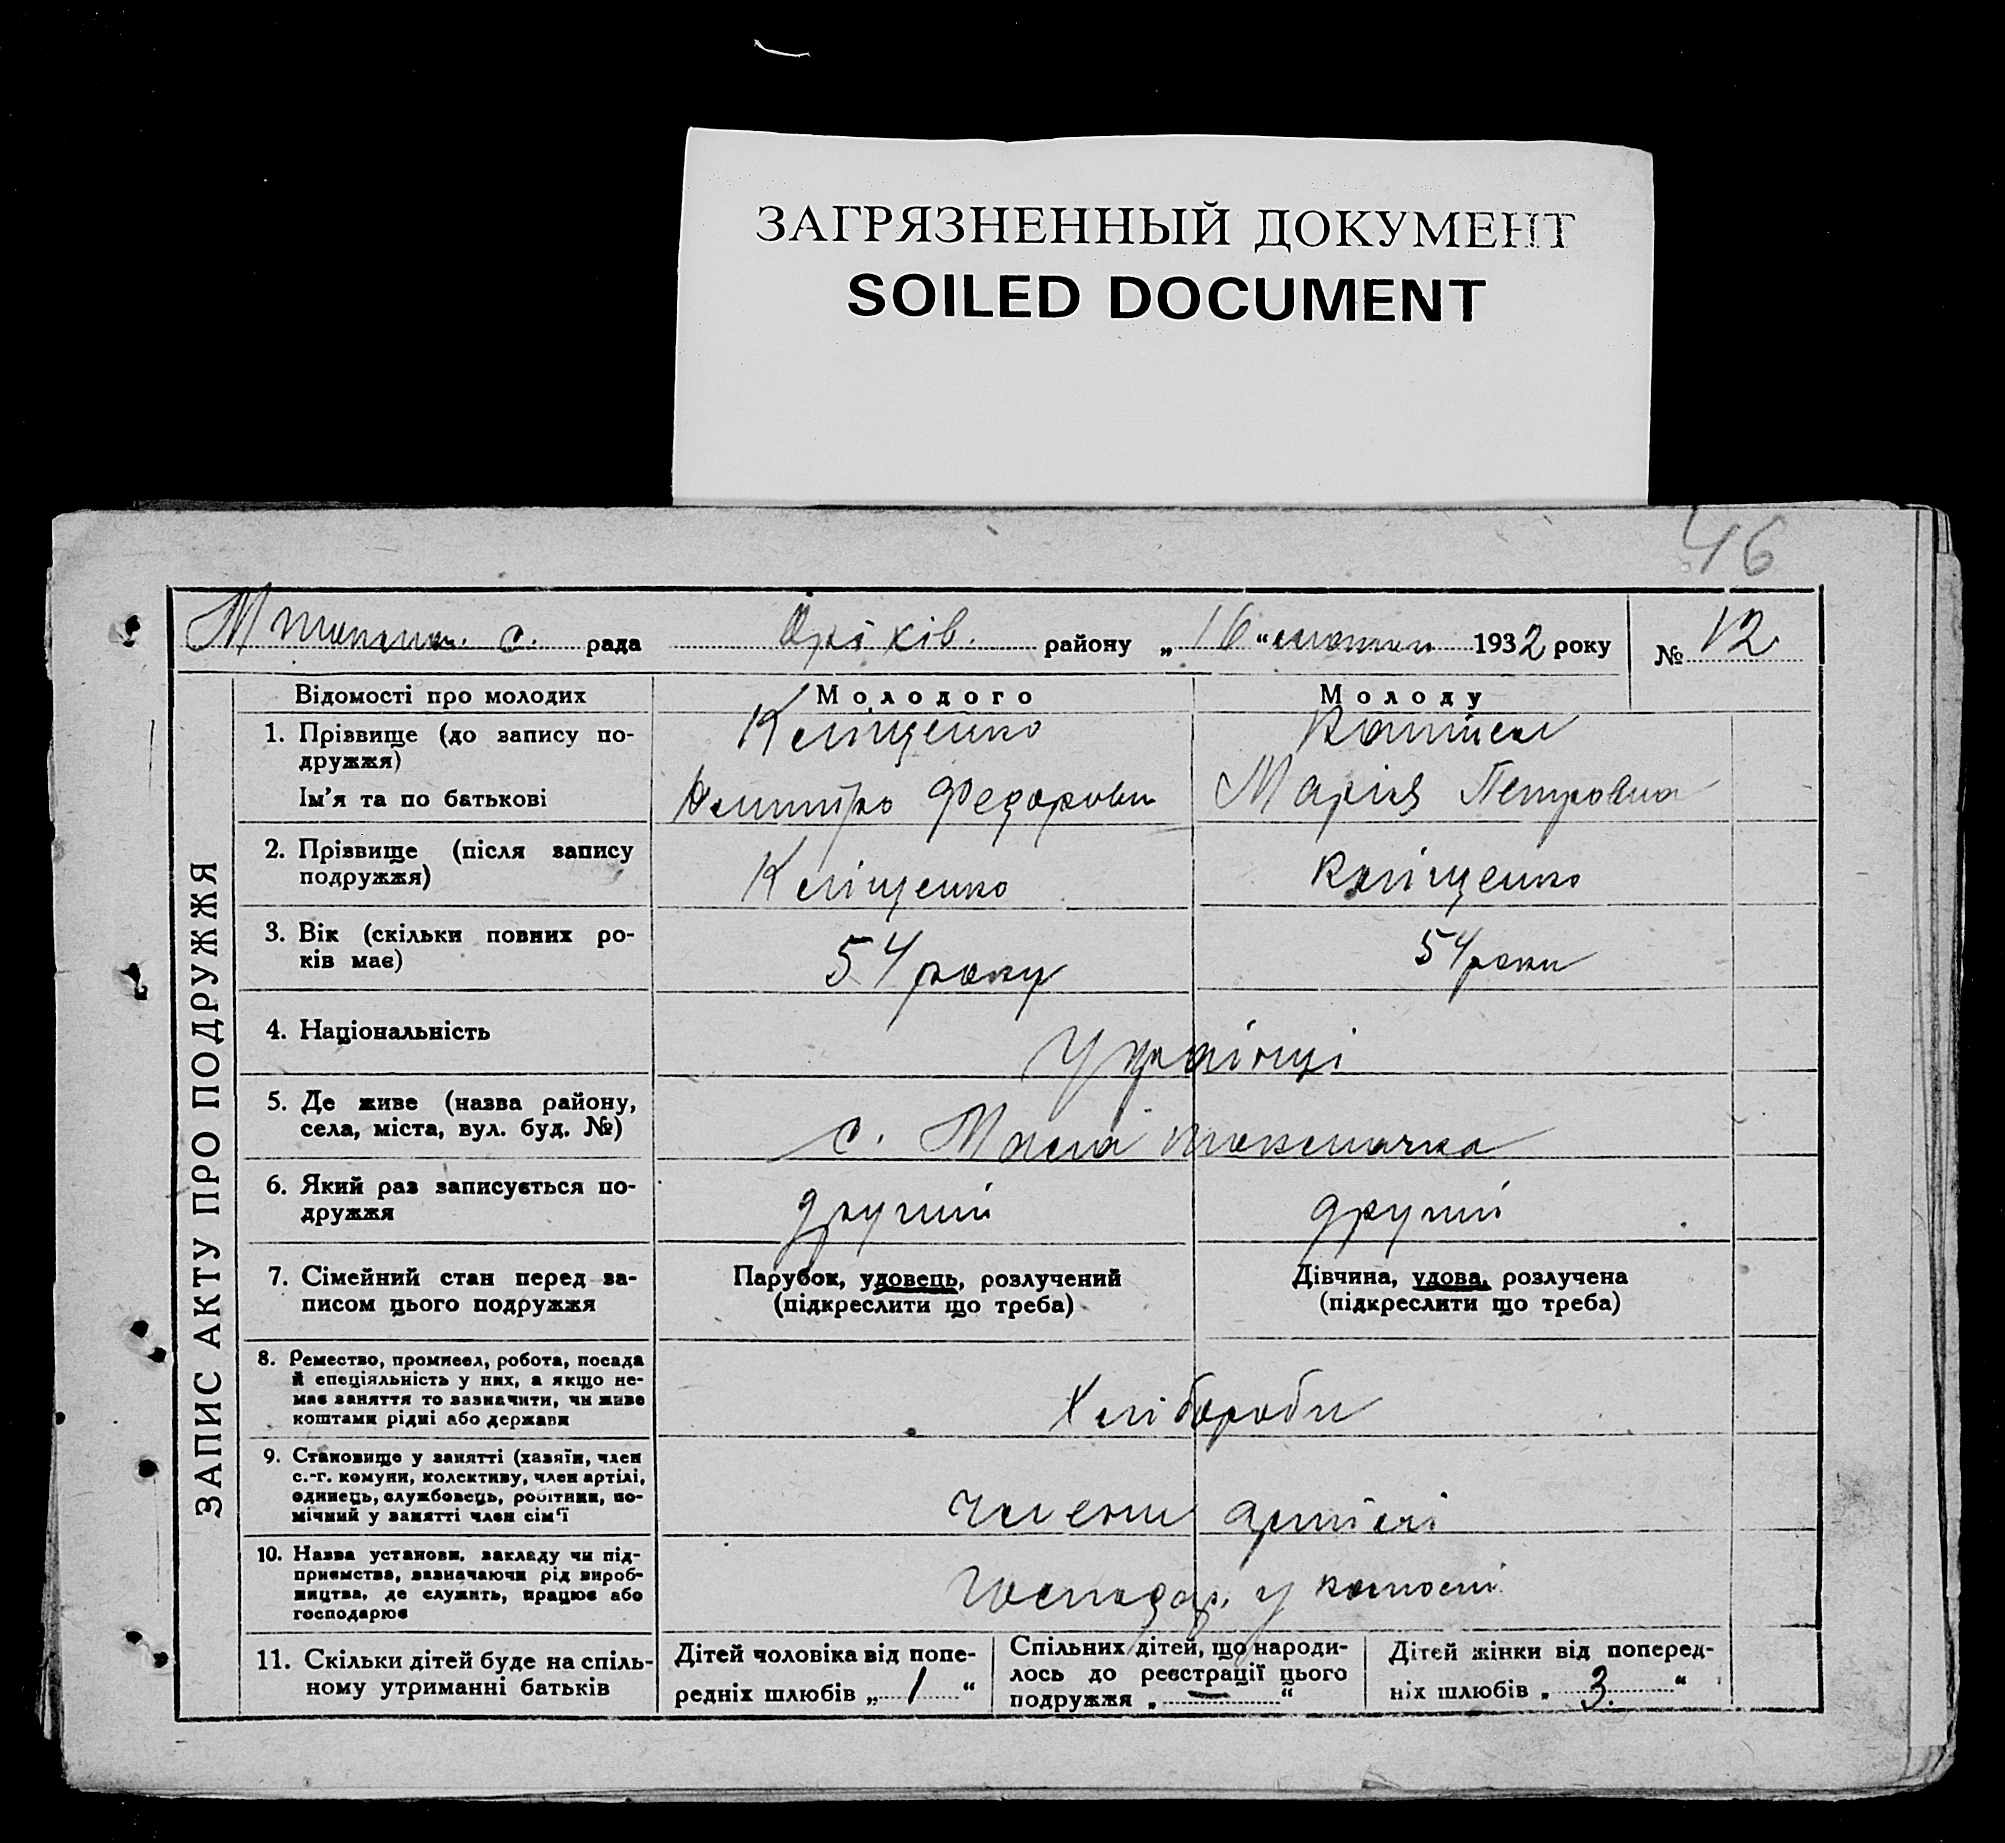 ЗАГРЯЗНЕННЫЙ ДОКУМЕНТ
SOILED DOCUMENT
46
с. рада Оріхів. району „16“ 1932 року № 12
ЗАПИС АКТУ ПРО ПОДРУЖЖЯ
Відомості про молодих Молодого Молоду
1. Прізвище (до запису по-
дружжя)
Кліщенко
Ім'я та по батькові
Дмитро Федорови Марія Петровна
2. Прізвище (після запису
подружжя)
Кліщенко Кліщенко
3. Вік (скільки повних ро-
ків має)
54 року 54 роки
4. Національність
Українці
5. Де живе (назва району,
села, міста, вул. буд. №)
с. Мала токмачка
6. Який раз записується по-
дружжя
другий другий
7. Сімейний стан перед за-
писом цього подружжя
Парубок, удовець, розлучений
(підкреслити що треба)
Дівчина, удова, розлучена
(підкреслити що треба)
8. Ремество, промисел, робота, посада
й спеціяльність у них, а якщо не-
має заняття то зазначити, чи живе
коштами рідні або держави
Хлібороби
9. Становище у занятті (хазяїн, член
с.-г. комуни, колективу, член артілі,
одинець, службовець, робітник, по-
мічний у занятті член сім'ї
члени артілі
10. Назва установи, закладу чи під-
приємства, зазначаючи рід вироб-
ництва, де служить, працює або
господарює
Господар. у колгоспі
11. Скільки дітей буде на спіль-
ному утриманні батьків
Дітей чоловіка від попе-
редніх шлюбів „ 1 “
Спільних дітей, що народи-
лось до реєстрації цього
подружжя „ — “
Дітей жінки від поперед-
ніх шлюбів „ 3. “